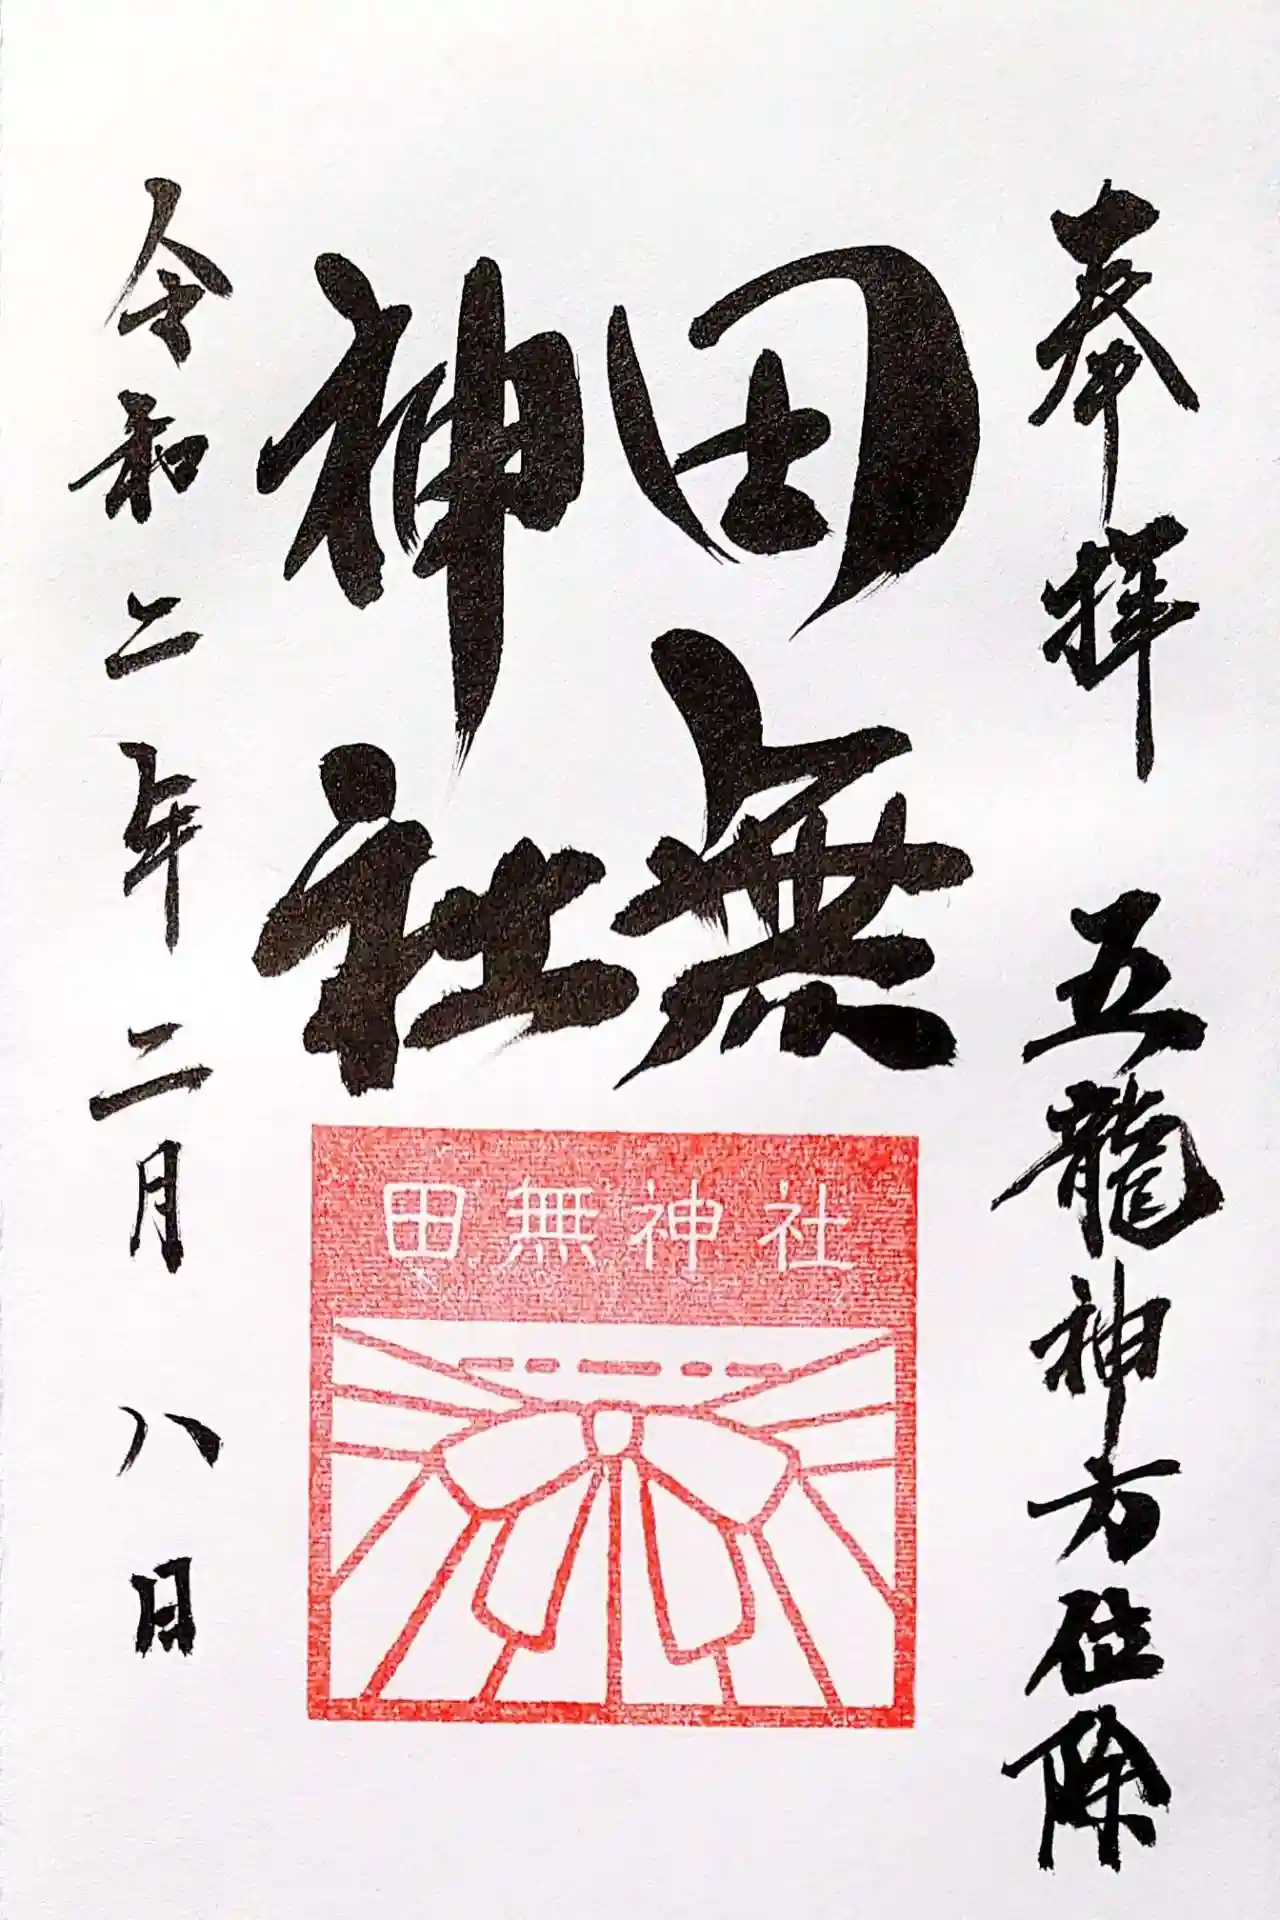 奉拝 五龍神方位除
田無
神社
田無神社
令和二年二月八日